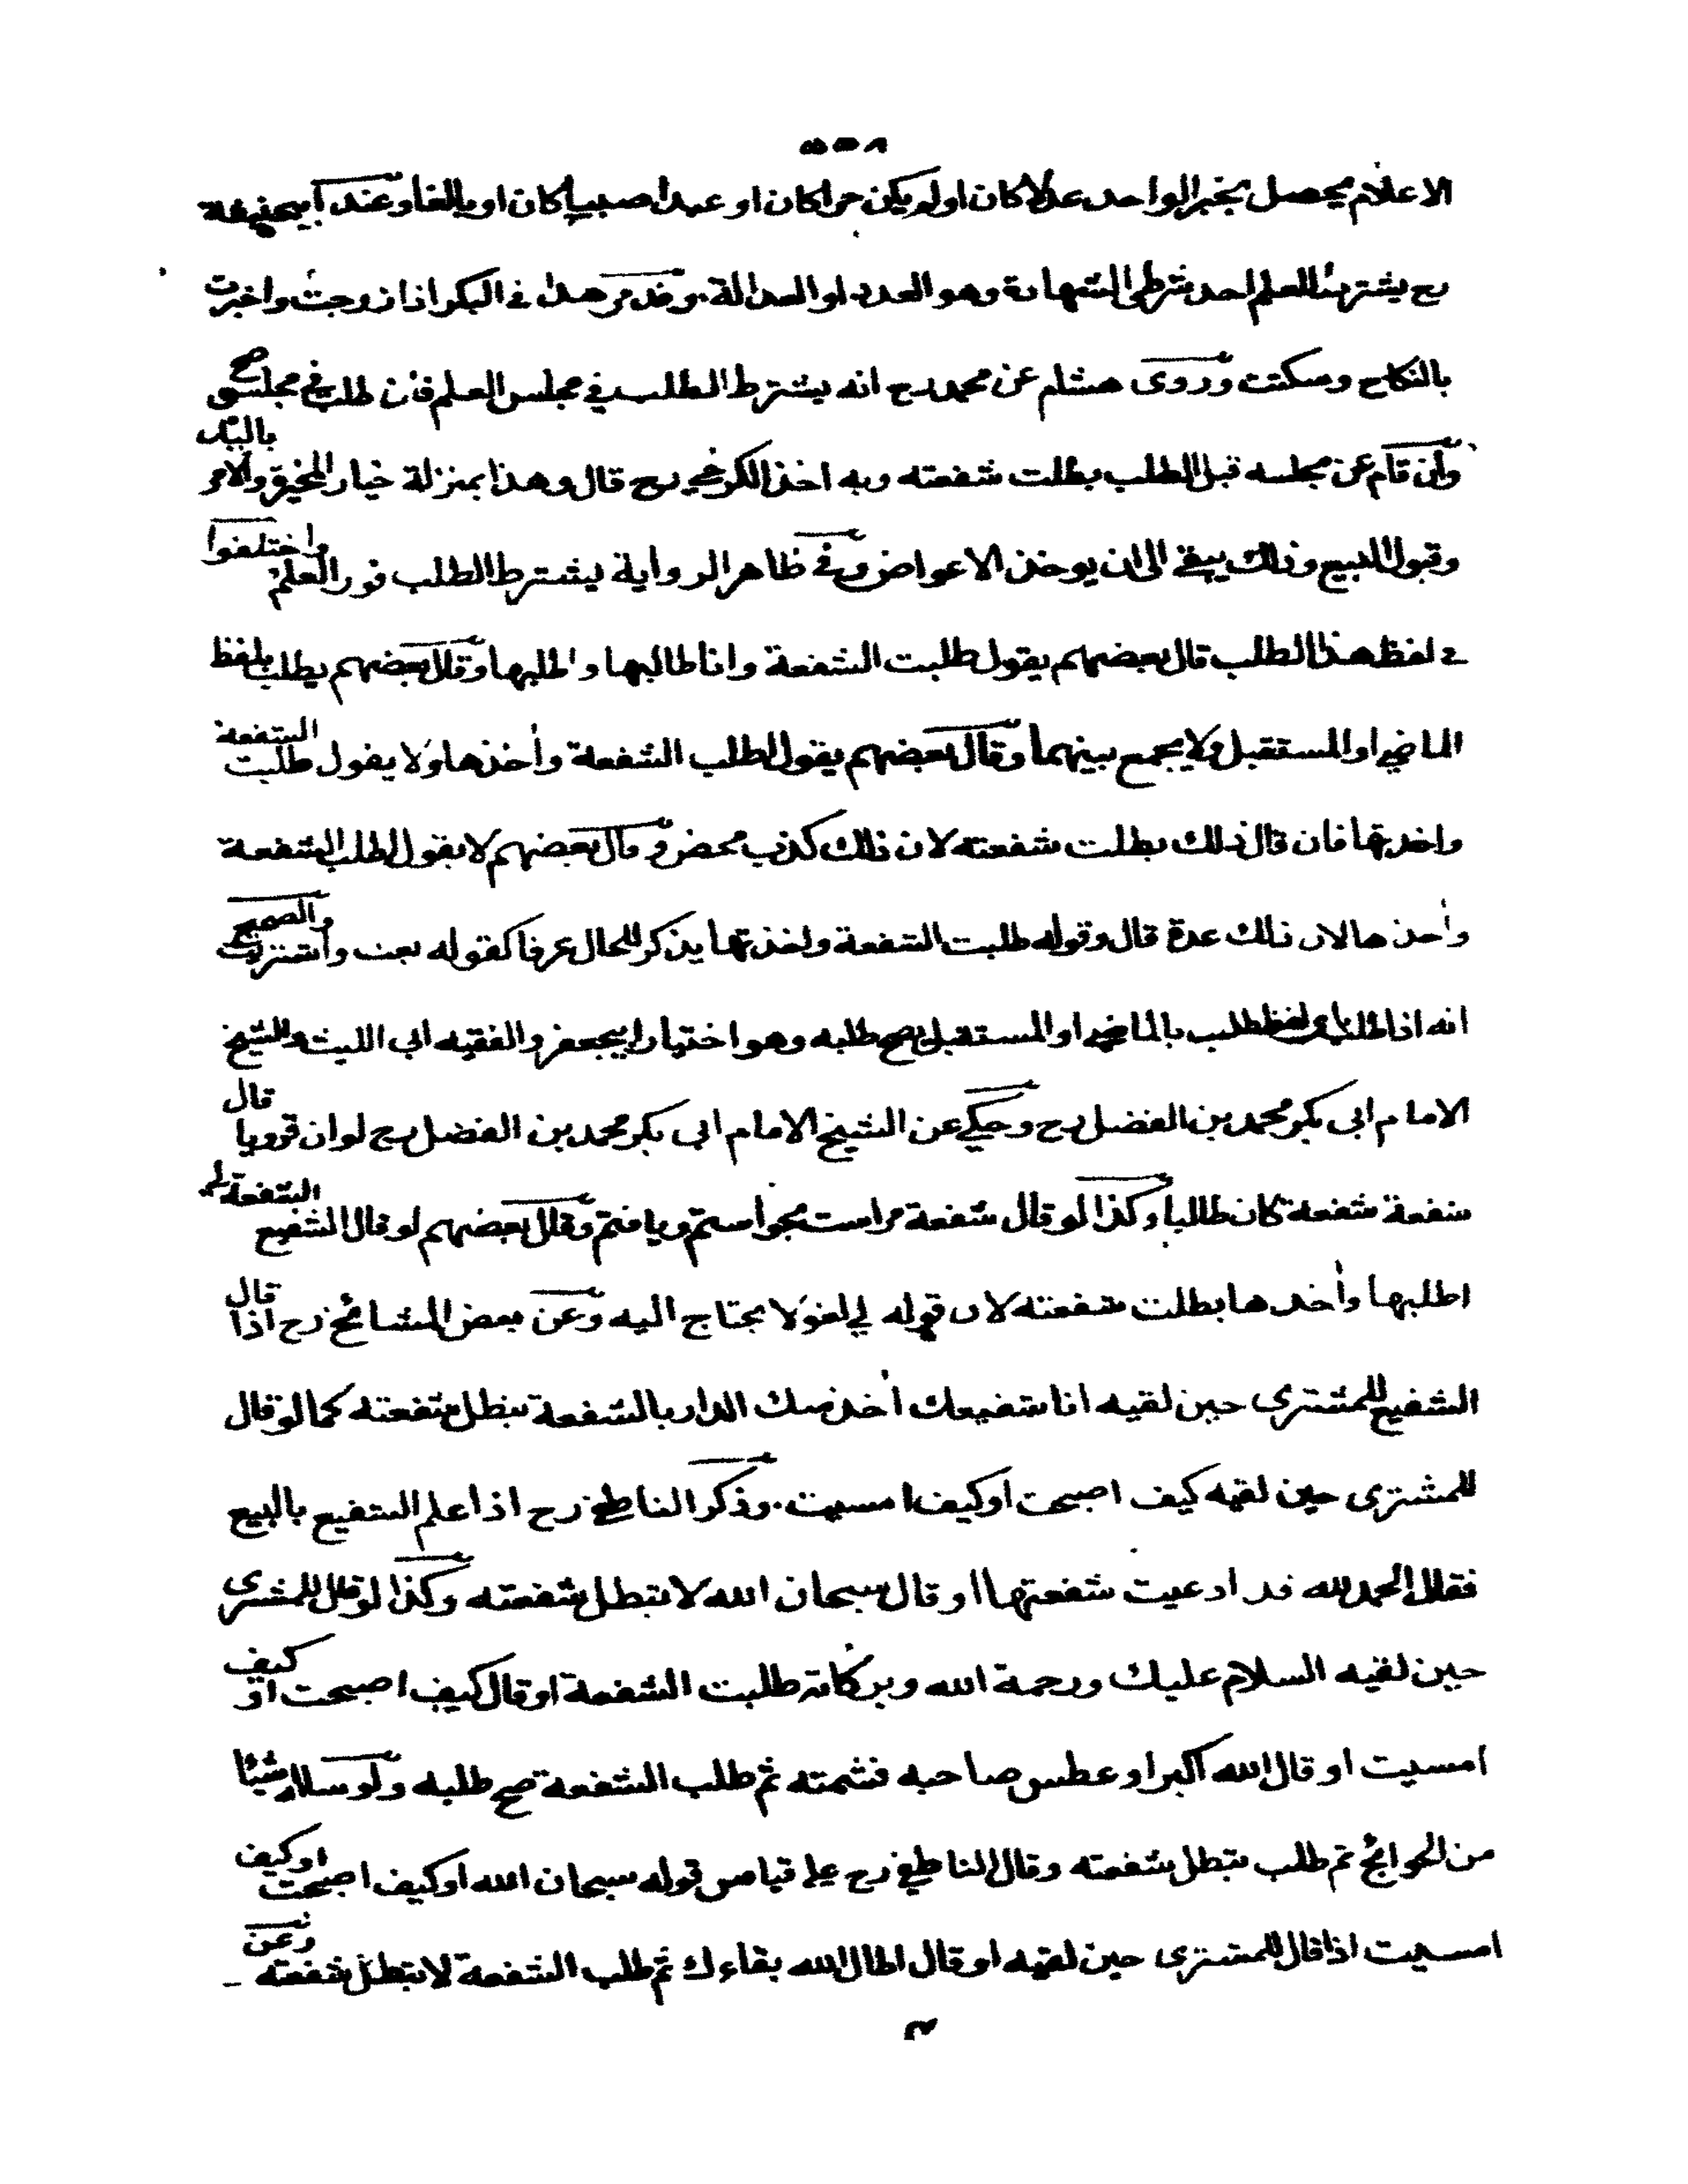 ٥٥٨
الاعلام يحصل بخبر الواحد عدلا كان اولم يكن حرا كان او عبدا صبيا كان او بالغا وعند ابيحنيفة
رح يشترط للعلم احد شرطي الشهادة وهو العدد او العدالة وقد مر هذا في البكر اذا زوجت واخبرت
بالنكاح وسكتت وروى هشام عن محمد رح انه يشترط الطلب في مجلس العلم فان طلب في مجلسه صح
وان قام عن مجلسه قبل الطلب بطلت شفعته وبه اخذ الكرخي رح قال وهذا بمنزلة خيار المخيرة والامر باليد
وقبول البيع وذلك يبقى الى ان يوخذ الاعراض وفي ظاهر الرواية يشترط الطلب فور العلم واختلفوا
في لفظ هذا الطلب قال بعضهم يقول طلبت الشفعة وانا طالبها واطلبها وقال بعضهم يطلب بلفظ
الماضي او المستقبل ولا يجمع بينهما وقال بعضهم يقول اطلب الشفعة وأخذها ولا يقول طلبت الشفعة
واخذتها فان قال ذلك بطلت شفعته لان ذلك كذب محض وقال بعضهم لا يقول اطلب الشفعة
وأخذها لان ذلك عدة قال وقوله طلبت الشفعة واخذتها يذكر للحال عرفا كقوله بعت واشتريت والصحيح
انه اذا طلب باى لفظ طلب بالماضي او المستقبل يصح طلبه وهو اختيار ابيجعفر والفقيه ابي الليث والشيخ
الامام ابى بكر محمد بن الفضل رح وحكي عن الشيخ الامام ابى بكر محمد بن الفضل رح لو ان قرويا قال
شفعة شفعة كان طالبا وكذا لو قال شفعة مراست بخواستم ويافتم وقال بعضهم لو قال الشفيع الشفعة لي
اطلبها وأخذها بطلت شفعته لان قوله لي لغو لا يحتاج اليه وعن بعض المشائخ رح اذا قال
الشفيع للمشترى حين لقيه انا شفيعك أخذ منك الدار بالشفعة تبطل شفعته كما لو قال
للمشترى حين لقيه كيف اصبحت او كيف امسيت. وذكر الناطفي رح اذا علم الشفيع بالبيع
فقال الحمد لله قد ادعيت شفعتها او قال سبحان الله لا تبطل شفعته وكذا لو قال للمشترى
حين لقيه السلام عليك ورحمة الله وبركاته طلبت الشفعة او قال كيف اصبحت او كيف
امسيت او قال الله اكبر او عطس صاحبه فشمته ثم طلب الشفعة صح طلبه ولو سلاه شيئا
من الحوائج ثم طلب تبطل شفعته وقال الناطفي رح على قياس قوله سبحان الله او كيف اصبحت او كيف
امسيت اذا قال للمشترى حين لقيه او قال اطال الله بقاءك ثم طلب الشفعة لا تبطل شفعته وعن